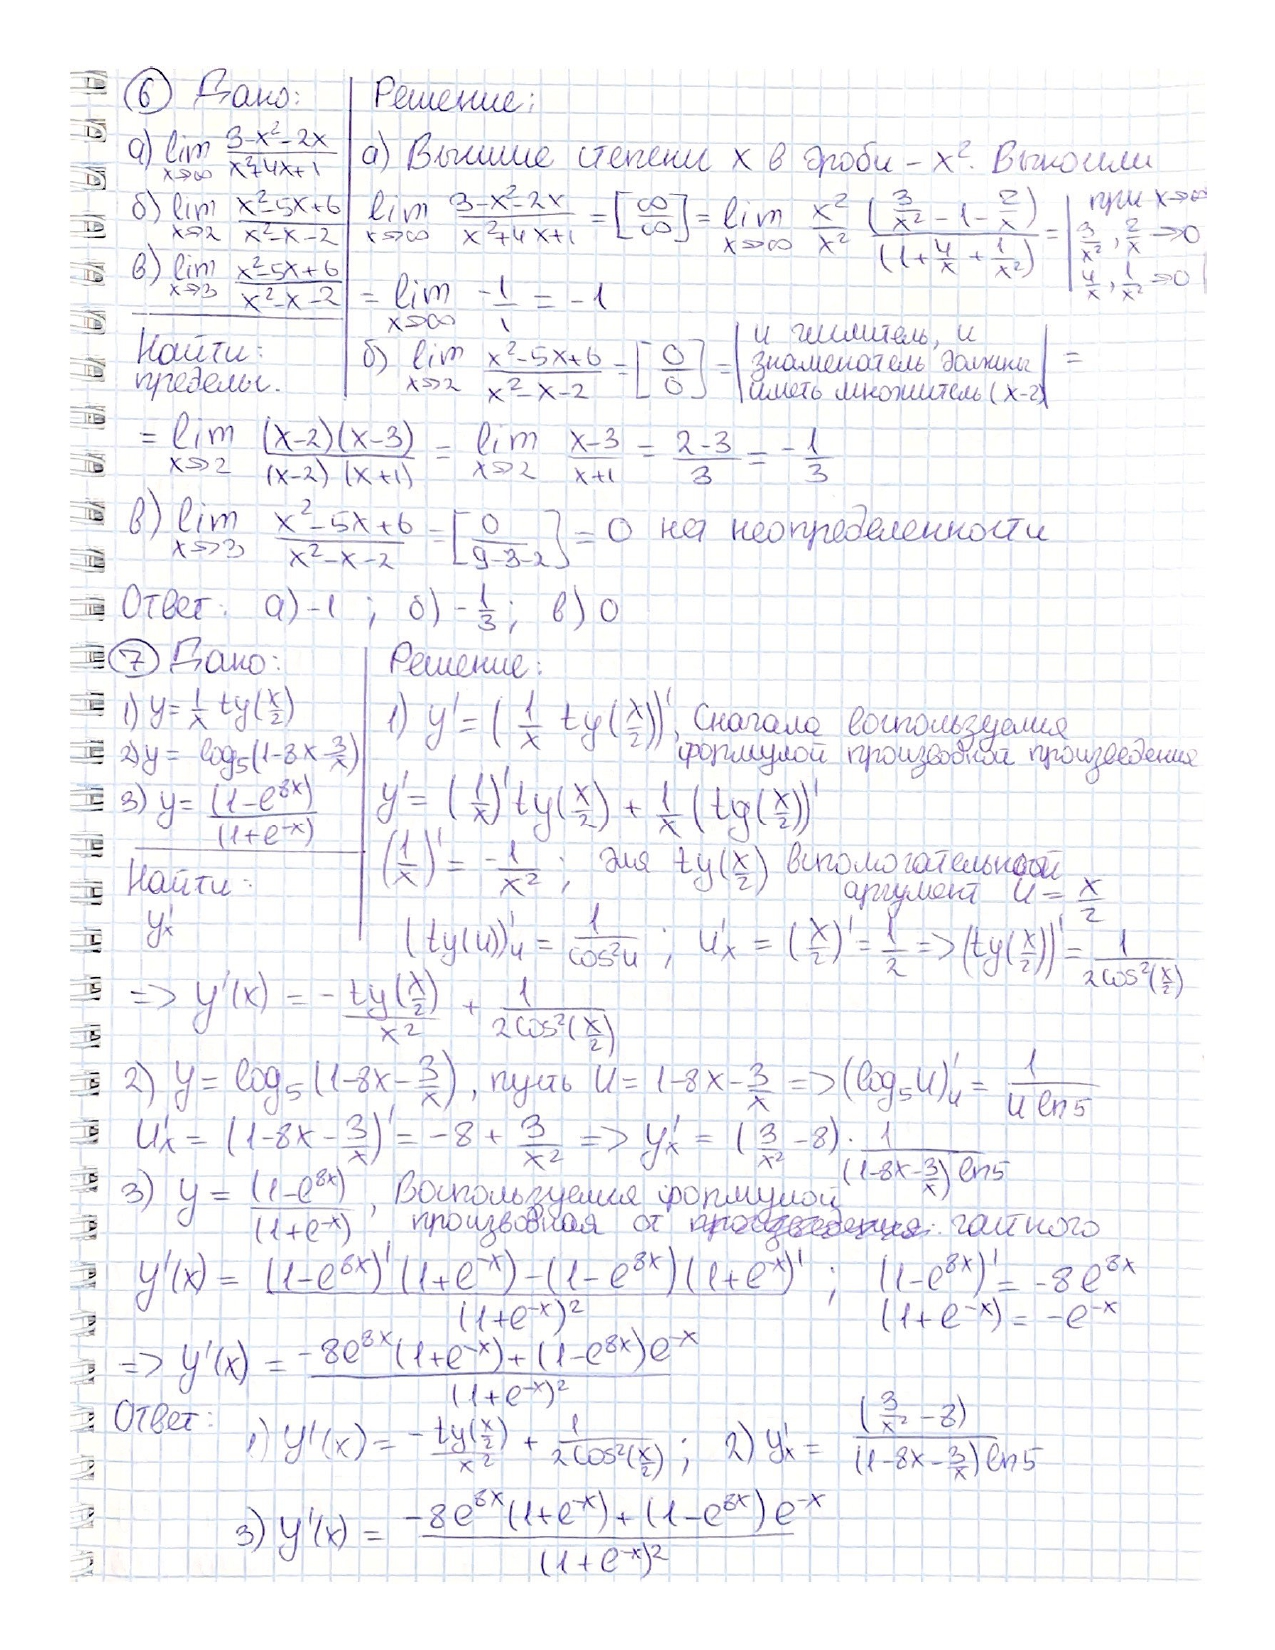 ⑥ Дано: Решение:
а) lim x→∞ (3-x²-2x)/(x²+4x+1)
б) lim x→2 (x²-5x+6)/(x²-x-2)
в) lim x→3 (x²-5x+6)/(x²-x-2)
Найти:
пределы.
а) Высшие степени x в дроби – x². Выносим
lim x→∞ (3-x²-2x)/(x²+4x+1) = [∞/∞] = lim x→∞ x²/x² (3/x² - 1 - 2/x)/(1+4/x+1/x²) = | при x→∞ 3/x², 2/x →0 4/x, 1/x² →0 |
= lim x→∞ -1/1 = -1
б) lim x→2 (x²-5x+6)/(x²-x-2) = [0/0] = | и числитель, и знаменатель должны иметь множитель (x-2) | =
= lim x→2 (x-2)(x-3)/(x-2)(x+1) = lim x→2 (x-3)/(x+1) = (2-3)/3 = -1/3
в) lim x→3 (x²-5x+6)/(x²-x-2) = [0/(9-3-2)] = 0 нет неопределенности
Ответ: а) -1 ; б) -1/3 ; в) 0
⑦ Дано: Решение:
1) y = 1/x tg(x/2)
2) y = log₅(1-8x-3/x)
3) y = (1-e^8x)/(1+e^-x)
Найти:
y'x
1) y' = (1/x tg(x/2))', Сначала воспользуемся
формулой производной произведения
y' = (1/x)' tg(x/2) + 1/x (tg(x/2))'
(1/x)' = -1/x² ; для tg(x/2) вспомогательный
аргумент u = x/2
(tg(u))'u = 1/cos²u ; u'x = (x/2)' = 1/2 => (tg(x/2))' = 1/2cos²(x/2)
=> y'(x) = - tg(x/2)/x² + 1/2cos²(x/2)
2) y = log₅(1-8x-3/x), пусть u = 1-8x-3/x => (log₅u)'u = 1/(u ln5)
u'x = (1-8x-3/x)' = -8 + 3/x² => y'x = (3/x² - 8) · 1/((1-8x-3/x) ln5)
3) y = (1-e^8x)/(1+e^-x), Воспользуемся формулой
производная от частного
y'(x) = ((1-e^8x)'(1+e^-x)-(1-e^8x)(1+e^-x)')/(1+e^-x)² ; (1-e^8x)' = -8e^8x
(1+e^-x) = -e^-x
=> y'(x) = (-8e^8x(1+e^-x)+(1-e^8x)e^-x)/(1+e^-x)²
Ответ: 1) y'(x) = - tg(x/2)/x² + 1/2cos²(x/2) ; 2) y'x = (3/x² - 8)/((1-8x-3/x) ln5)
3) y'(x) = (-8e^8x(1+e^-x)+(1-e^8x)e^-x)/(1+e^-x)²